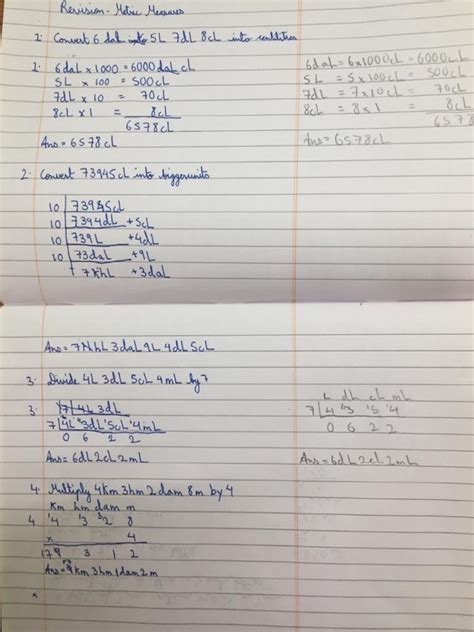 Revision - Metric Measures
1. Convert 6 daL 5L 7dL 8cL into centilitres
1. 6daL x 1000 = 6000 cL
5L x 100 = 500cL
7dL x 10 = 70cL
8cL x 1 = 8cL
6578cL
Ans = 6578cL
6daL = 6x1000cL = 6000cL
5L = 5 x 100cL = 500cL
7dL = 7x10cL = 70cL
8cL = 8x1 = 8cL
6578
Ans = 6578cL
2. Convert 73945cL into bigger units
10 73945cL
10 7394dL +5cL
10 739L +4dL
10 73daL +9L
7hL +3daL
Ans = 7hL 3daL 9L 4dL 5cL
3. Divide 4L 3dL 5cL 4mL by 7
3. 7 4L 3dL
7 4L 43dL 15cL 14mL
0 6 2 2
Ans = 6dL 2cL 2mL
L dL cL mL
7 4 43 15 14
0 6 2 2
Ans = 6dL 2cL 2mL
4. Multiply 4km 3hm 2dam 8m by 4
km hm dam m
4. 4 3 2 8
x 4
17 3 1 2
Ans = km 3hm 1dam 2m